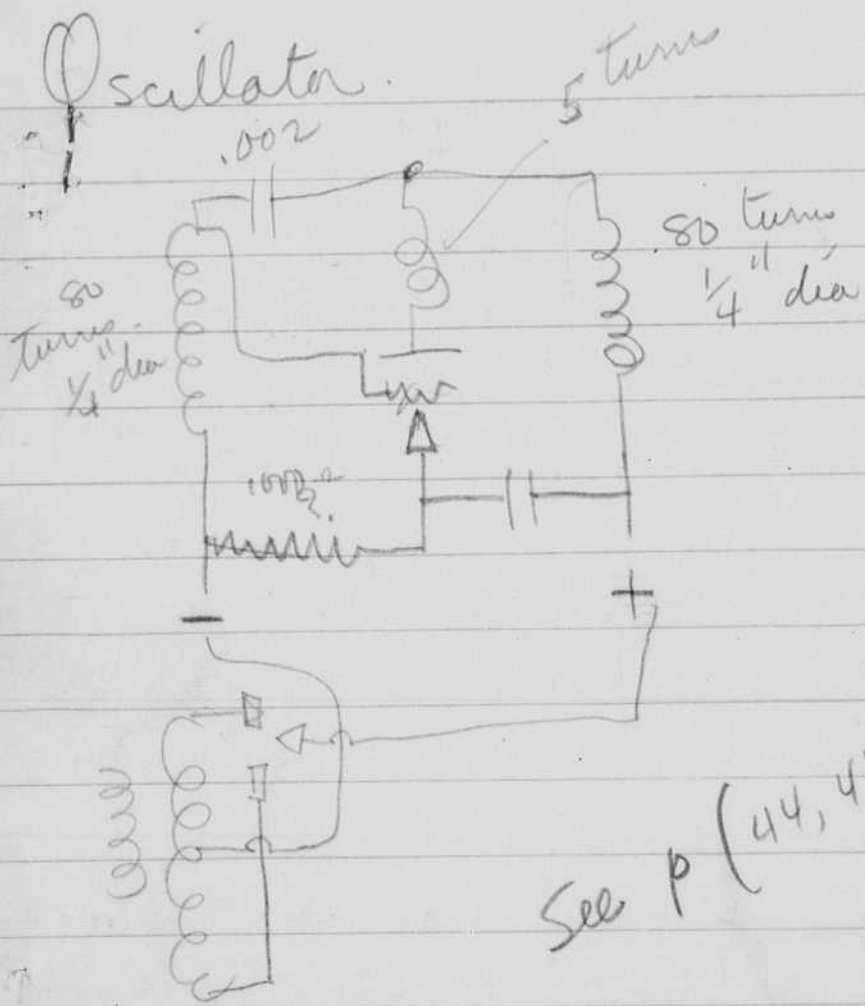 Oscillator.
5 turns
.002
80 turns
1/4" dia
80
turns
1/4" dia
+
-
See p (44, 4